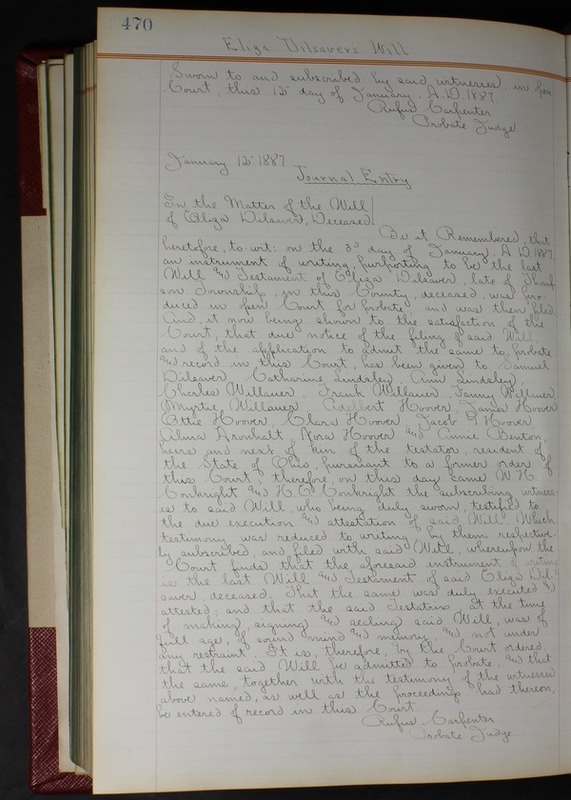 470
Eliza Dilsaver's Will
Sworn to and subscribed by said witnesses, in open
Court, this 12" day of January, A.D. 1887.
Rufus Carpenter
Probate Judge
January 12" 1887
Journal Entry
In the Matter of the Will
of Eliza Dilsaver, Deceased.
Be it Remembered, that
heretofore, to-wit: on the day of January, A.D. 1887,
an instrument of writing, purporting to be the last
Will and Testament of Eliza Dilsaver, late of Thomp-
son Township, in this County, deceased, was pro-
duced in open Court for probate, and was then filed.
And, it now being shown to the satisfaction of the
Court, that due notice of the filing of said Will
and of the application to admit the same to probate
and record in this Court, has been given to Samuel
Dilsaver, Catharine Lindsley, Ann Lindsley,
Charles Willauer, Frank Willauer, Fanny Willauer,
Myrtie Willauer, Hoover, Hoover
Ottie Hoover, Clara Hoover, Jacob Hoover
Aronhalt, Nora Hoover and Annie Benton,
heirs and next of kin of the testator, resident of
the State of Ohio, pursuant to a former order of
this Court; therefore, on this day came W.H.
Conkright and H.C. Conkright the subscribing witness-
es to said Will, who being duly sworn, testified to
the due execution and attestation of said Will, Which
testimony was reduced to writing, by them respective-
ly subscribed, and filed with said Will, whereupon the
Court finds that the aforesaid instrument of writing
is the last Will and Testament of said Eliza Dil-
saver, deceased. That the same was duly executed and
attested; and that the said Testatrix, at the time
of making, signing and sealing said Will, was of
full age, of sound mind and memory, and not under
any restraint. It is, therefore, by the Court ordered
that the said Will be admitted to probate, and that
the same, together with the testimony of the witnesses
above named, as well as the proceedings had thereon,
be entered of record in this Court.
Rufus Carpenter
Probate Judge